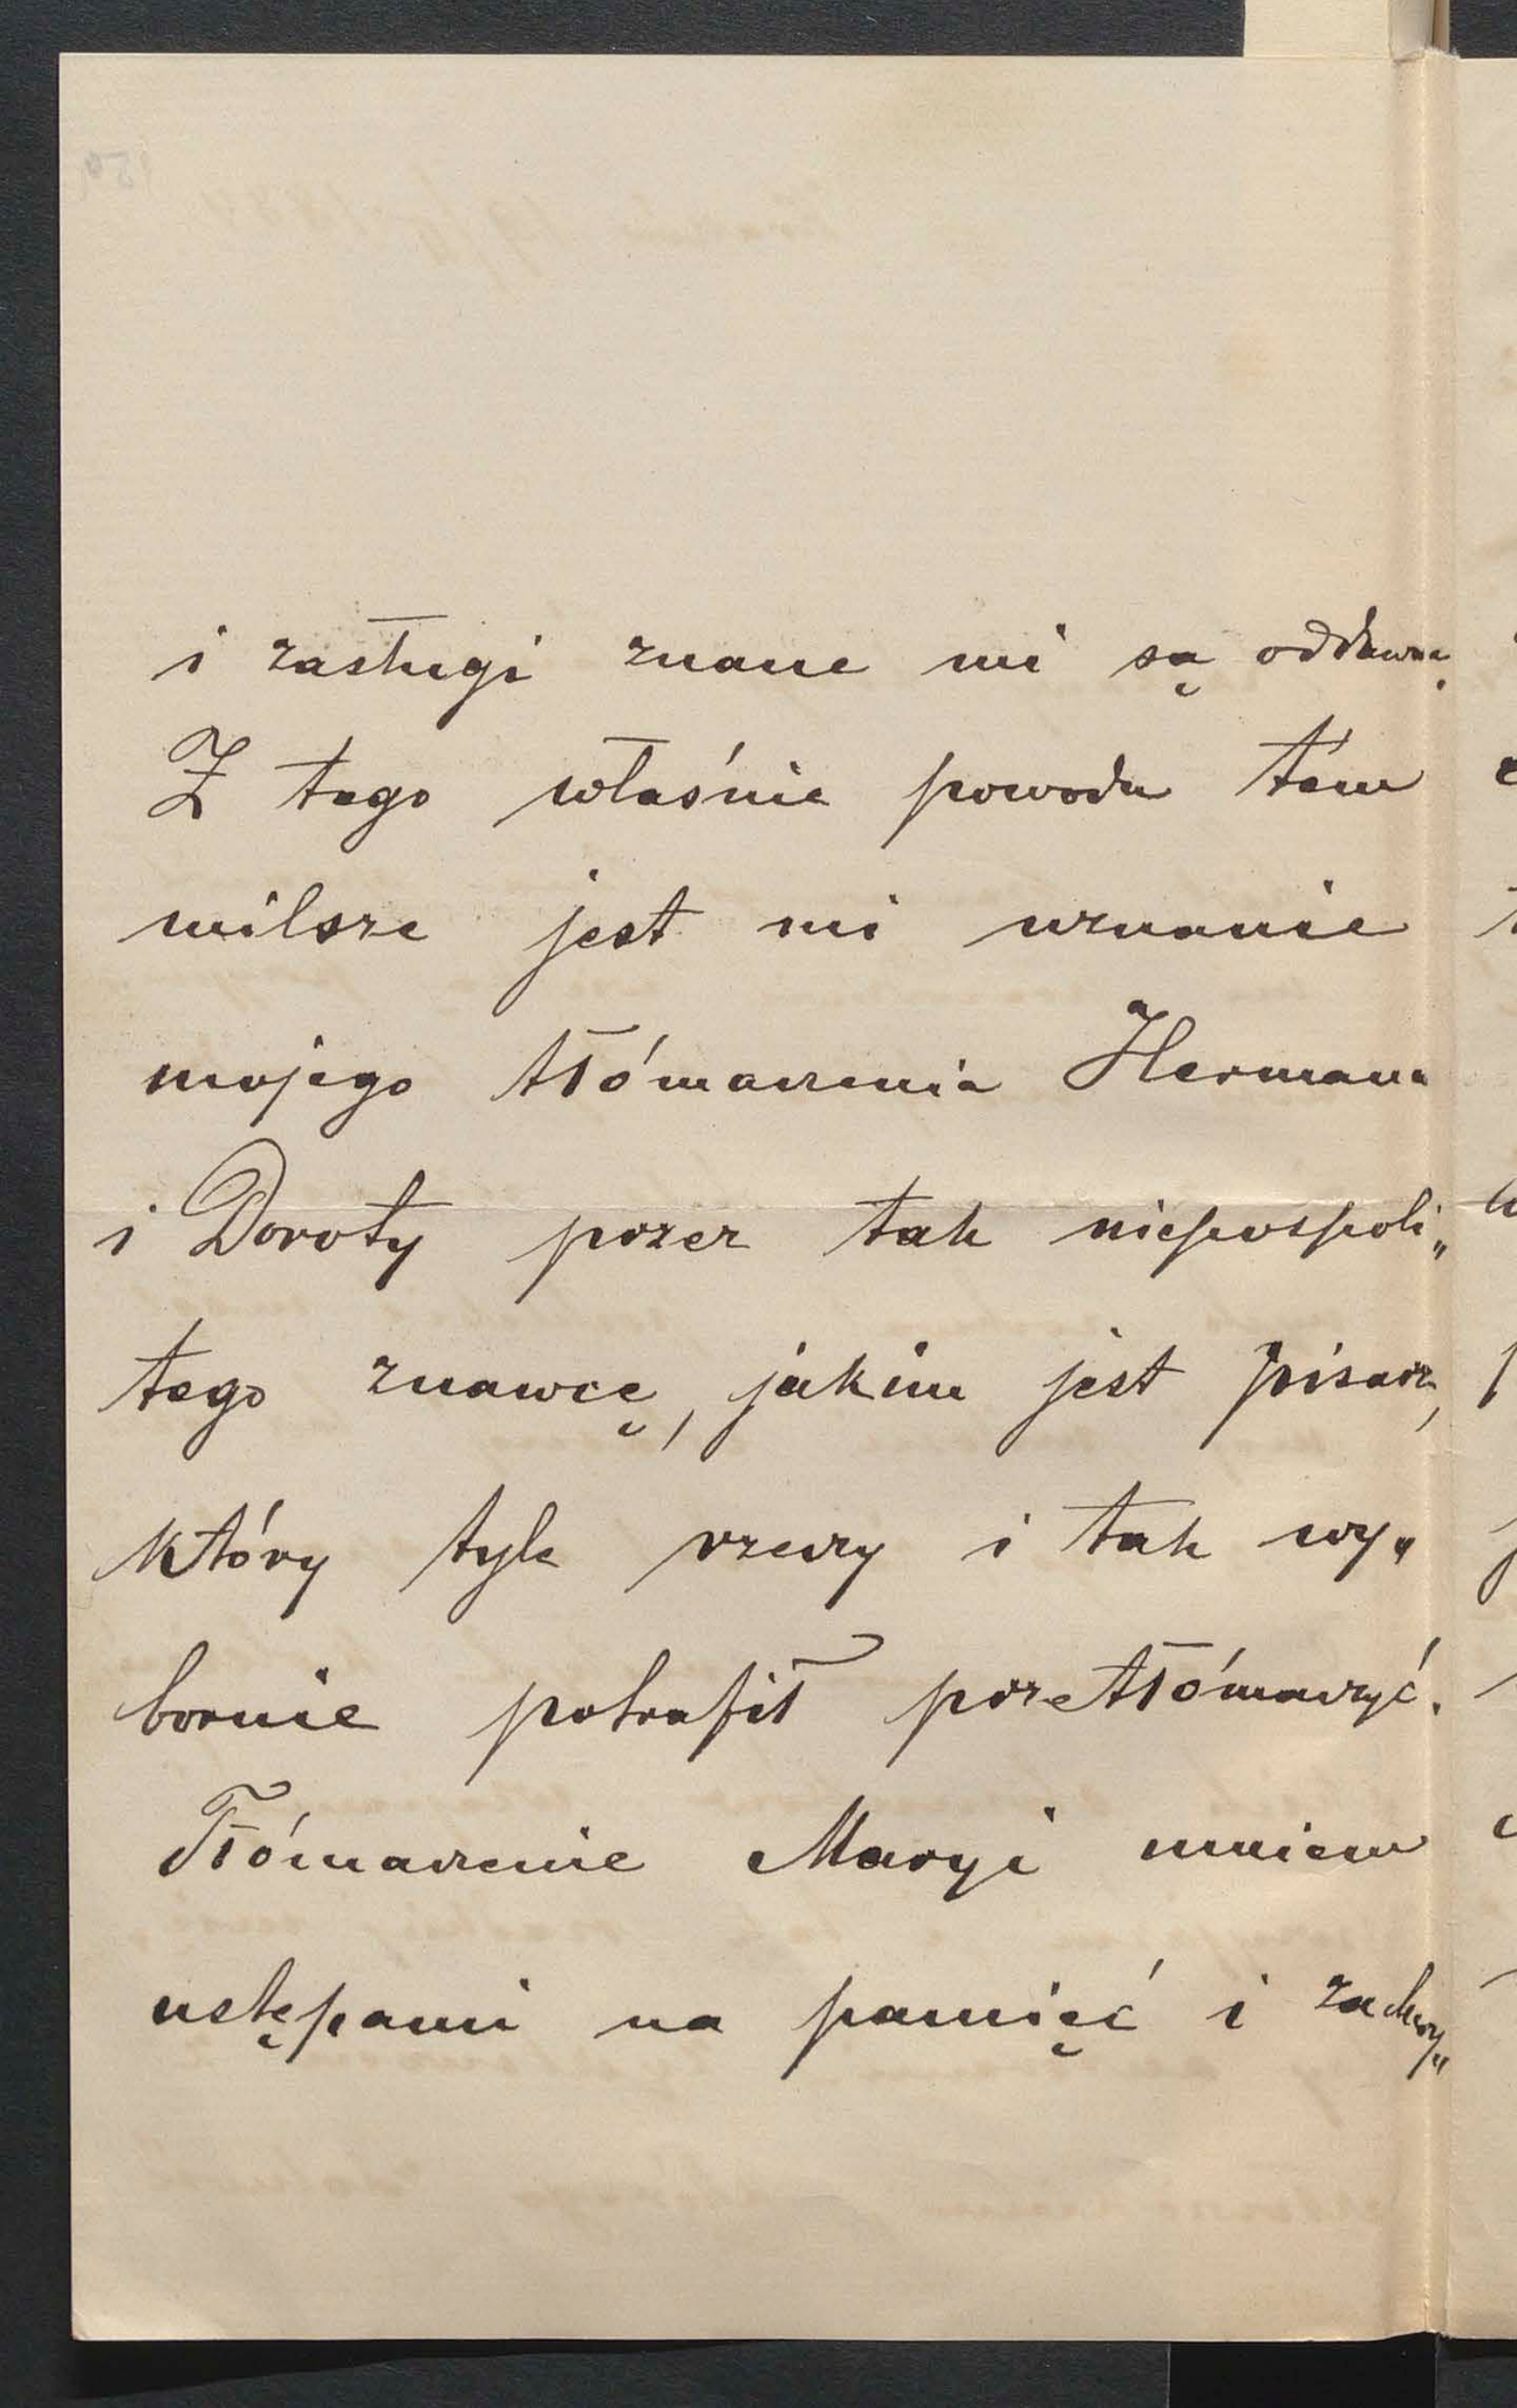 i zasługi znane mi są oddawna.
Z tego właśnie powodu tém
milsze jest mi uznanie
mojego tłómaczenia Hermana
i Doroty przez tak niepospoli„
tego znawcę, jakim jest pisarz,
który tyle rzeczy i tak wy„
bornie potrafił przetłómaczyć.
Tłómaczenie Maryi umiem
ustępami na pamięć i zachwy„